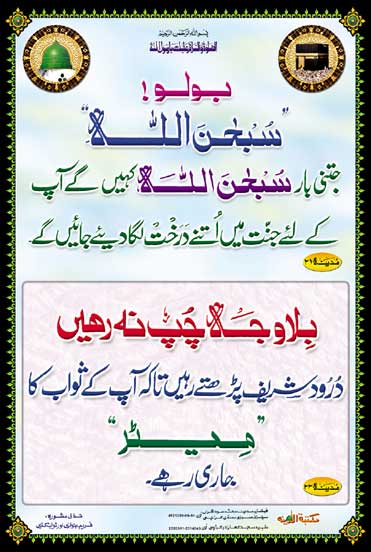 بِسْمِ اللہِ الرَّحْمٰنِ الرَّحِیْمِ
بولو!
”سُبْحٰنَ اللہ“
جتنی بار سُبْحٰنَ اللہ کہیں گے آپ
کے لئے جنّت میں اُتنے درخت لگا دیئے جائیں گے۔
مدینہ ۳۱
بِلا وجہ چُپ نہ رہیں
دُرُود شریف پڑھتے رہیں تاکہ آپ کے ثواب کا
”مِیٹر“
جاری رہے۔
مدینہ ۳۳
مکتبۃ المدینہ